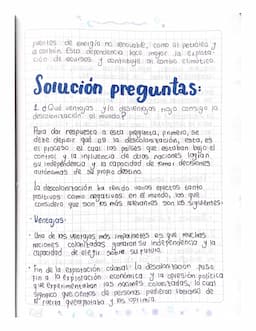 fuentes de energía no renovable, como el petróleo y
el carbón. Esta dependencia hace mayor la explota-
ción de recursos y contribuye al cambio climático.
Solución preguntas:
1. ¿Qué ventajas y/o desventajas trajo consigo la
descolonización el mundo?
Para dar respuesta a esta pregunta, primero, se
debe definir qué es la descolonización, esta, es
el proceso en cual los países que estaban bajo el
control y la influencia de otras naciones logran
su independencia y la capacidad de tomar decisiones
autónomas de su propio destino.
La descolonización ha tenido varios efectos tanto
positivos como negativos en el mundo, los que
considero que son los más relevantes son los siguientes:
Ventajas:
Una de las ventajas más importantes es que muchas
naciones colonizadas ganaron su independencia y la
capacidad de elegir sobre su futuro.
Fin de la explotación colonial: la descolonización puso
fin a la explotación económica y la opresión política
que experimentaban las naciones colonizadas, lo cual
significó que cientos de personas pudieron